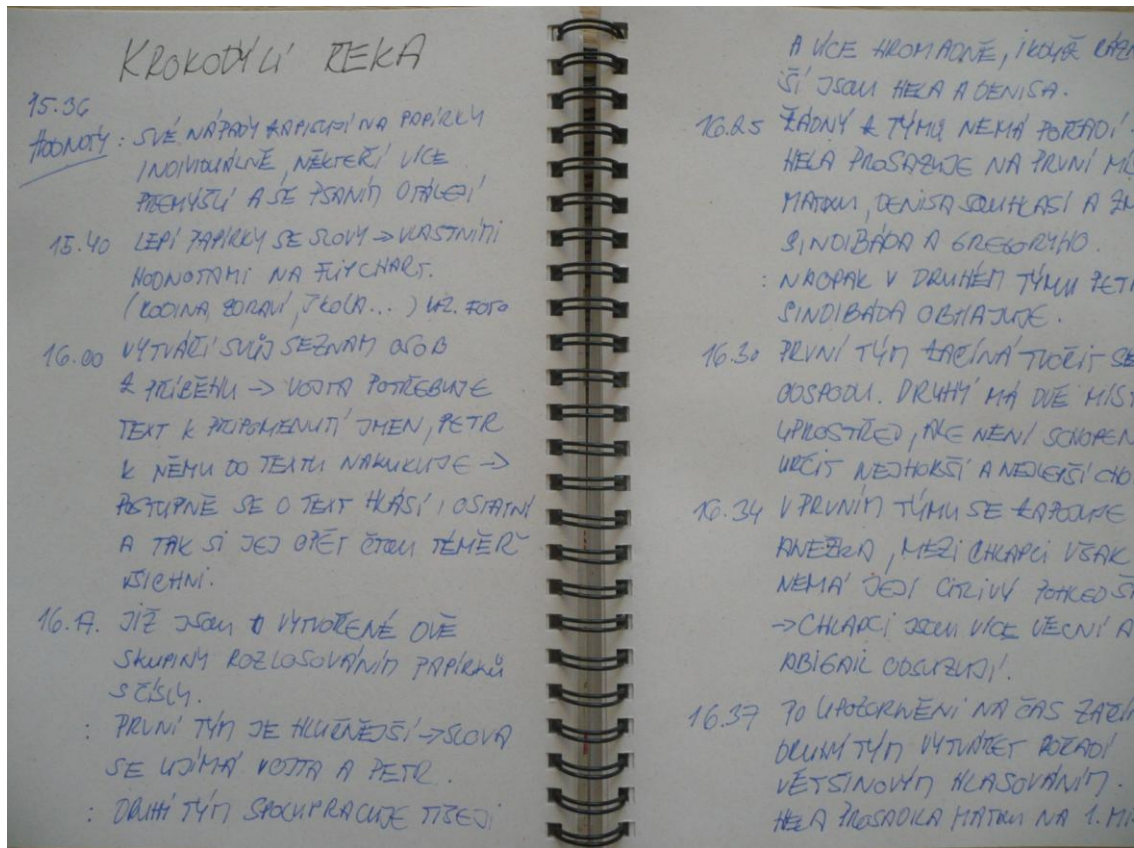 KROKODÝLÍ ŘEKA
15.36
HODNOTY : SVÉ NÁPADY ZAPISUJÍ NA PAPÍRKY
INDIVIDUÁLNĚ, NĚKTEŘÍ VÍCE
PŘEMÝŠLÍ A SE PSANÍM OTÁLEJÍ
15.40 LEPÍ PAPÍRKY SE SLOVY → VLASTNÍMI
HODNOTAMI NA FLIPCHART.
(RODINA, ZDRAVÍ, ŠKOLA...) VIZ. FOTO
16.00 VYTVÁŘÍ SVŮJ SEZNAM OSOB
Z PŘÍBĚHU → VOJTA POTŘEBUJE
TEXT K PŘIPOMENUTÍ JMEN, PETR
K NĚMU DO TEXTU NAKUKUJE →
POSTUPNĚ SE O TEXT HLÁSÍ I OSTATNÍ
A TAK SI JEJ OPĚT ČTOU TÉMĚŘ
VŠICHNI.
JIŽ JSOU VYTVOŘENÉ DVĚ
SKUPINY ROZLOSOVÁNÍM PAPÍRKŮ
S ČÍSLY.
: PRVNÍ TÝM JE HLUČNĚJŠÍ → SLOVA
SE UJÍMÁ VOJTA A PETR.
: DRUHÝ TÝM SPOLUPRACUJE TIŠEJI
A VÍCE HROMADNĚ, I KDYŽ RÁZN
ŠÍ JSOU HELA A DENISA.
16.25 ŽÁDNÝ Z TÝMŮ NEMÁ POŘADÍ.
HELA PROSAZUJE NA PRVNÍ MÍS
MATKU, DENISA SOUHLASÍ A ZM
SINDIBÁDA A GREGORYHO.
: NAOPAK V DRUHÉM TÝMU PETR
SINDIBÁDA OBHAJUJE.
16.30 PRVNÍ TÝM ZAČÍNÁ TVOŘIT SE
ODSPODU. DRUHÝ MÁ DVĚ MÍST
UPROSTŘED, ALE NENÍ SCHOPEN
URČIT NEJHORŠÍ A NEJLEPŠÍ CHO
16.34 V PRVNÍM TÝMU SE ZAPOJUJE
ANEŽKA, MEZI CHLAPCI VŠAK
NEMÁ JEJÍ CITLIVÝ POHLED ŠA
→ CHLAPCI JSOU VÍCE VĚCNÍ A
ABIGAIL ODSUZUJÍ.
16.37 PO UPOZORNĚNÍ NA ČAS ZAČÍN
DRUHÝ TÝM VYTVÁŘET POŘADÍ
VĚTŠINOVÝM HLASOVÁNÍM.
HELA PROSADILA MATKU NA 1. MÍ